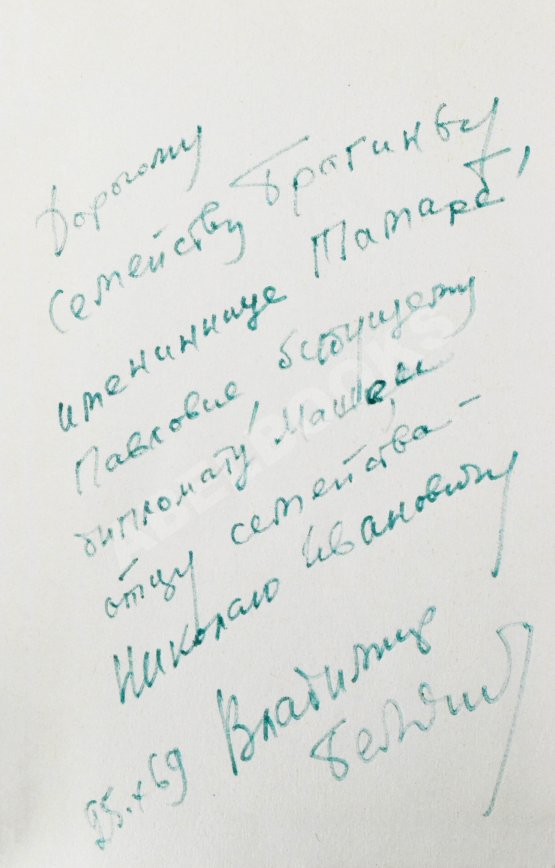 Дорогому
Семейству Брагиных,
имениннице Тамаре
Павловне, будущему
дипломату Маше и
отцу семейства –
Николаю Ивановичу
Владимир
25.X 69
ABEZBOOKS